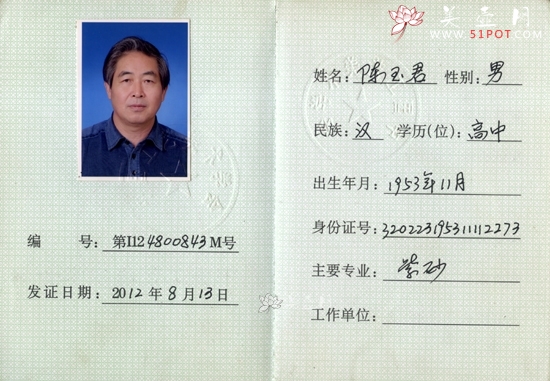 美壶网
WWW.51POT.COM
姓名：陈玉君 性别：男
民族：汉 学历(位)：高中
出生年月：1953年11月
身份证号：320223195311112273
主要专业：紫砂
工作单位：
编 号：第I124800843M号
发证日期：2012年8月13日